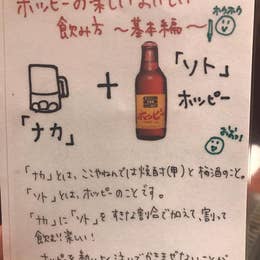 ホッピーの楽しいおいしい
飲み方 ～基本編～
ホウホウ
「ソト」
ホッピー
「ナカ」
おぉっ!
「ナカ」とは、ここやねんでは焼酎(甲)と梅酒のこと。
「ソト」とは、ホッピーのことです。
「ナカ」に「ソト」をすきな割合で加えて、割って
飲む!楽しい!